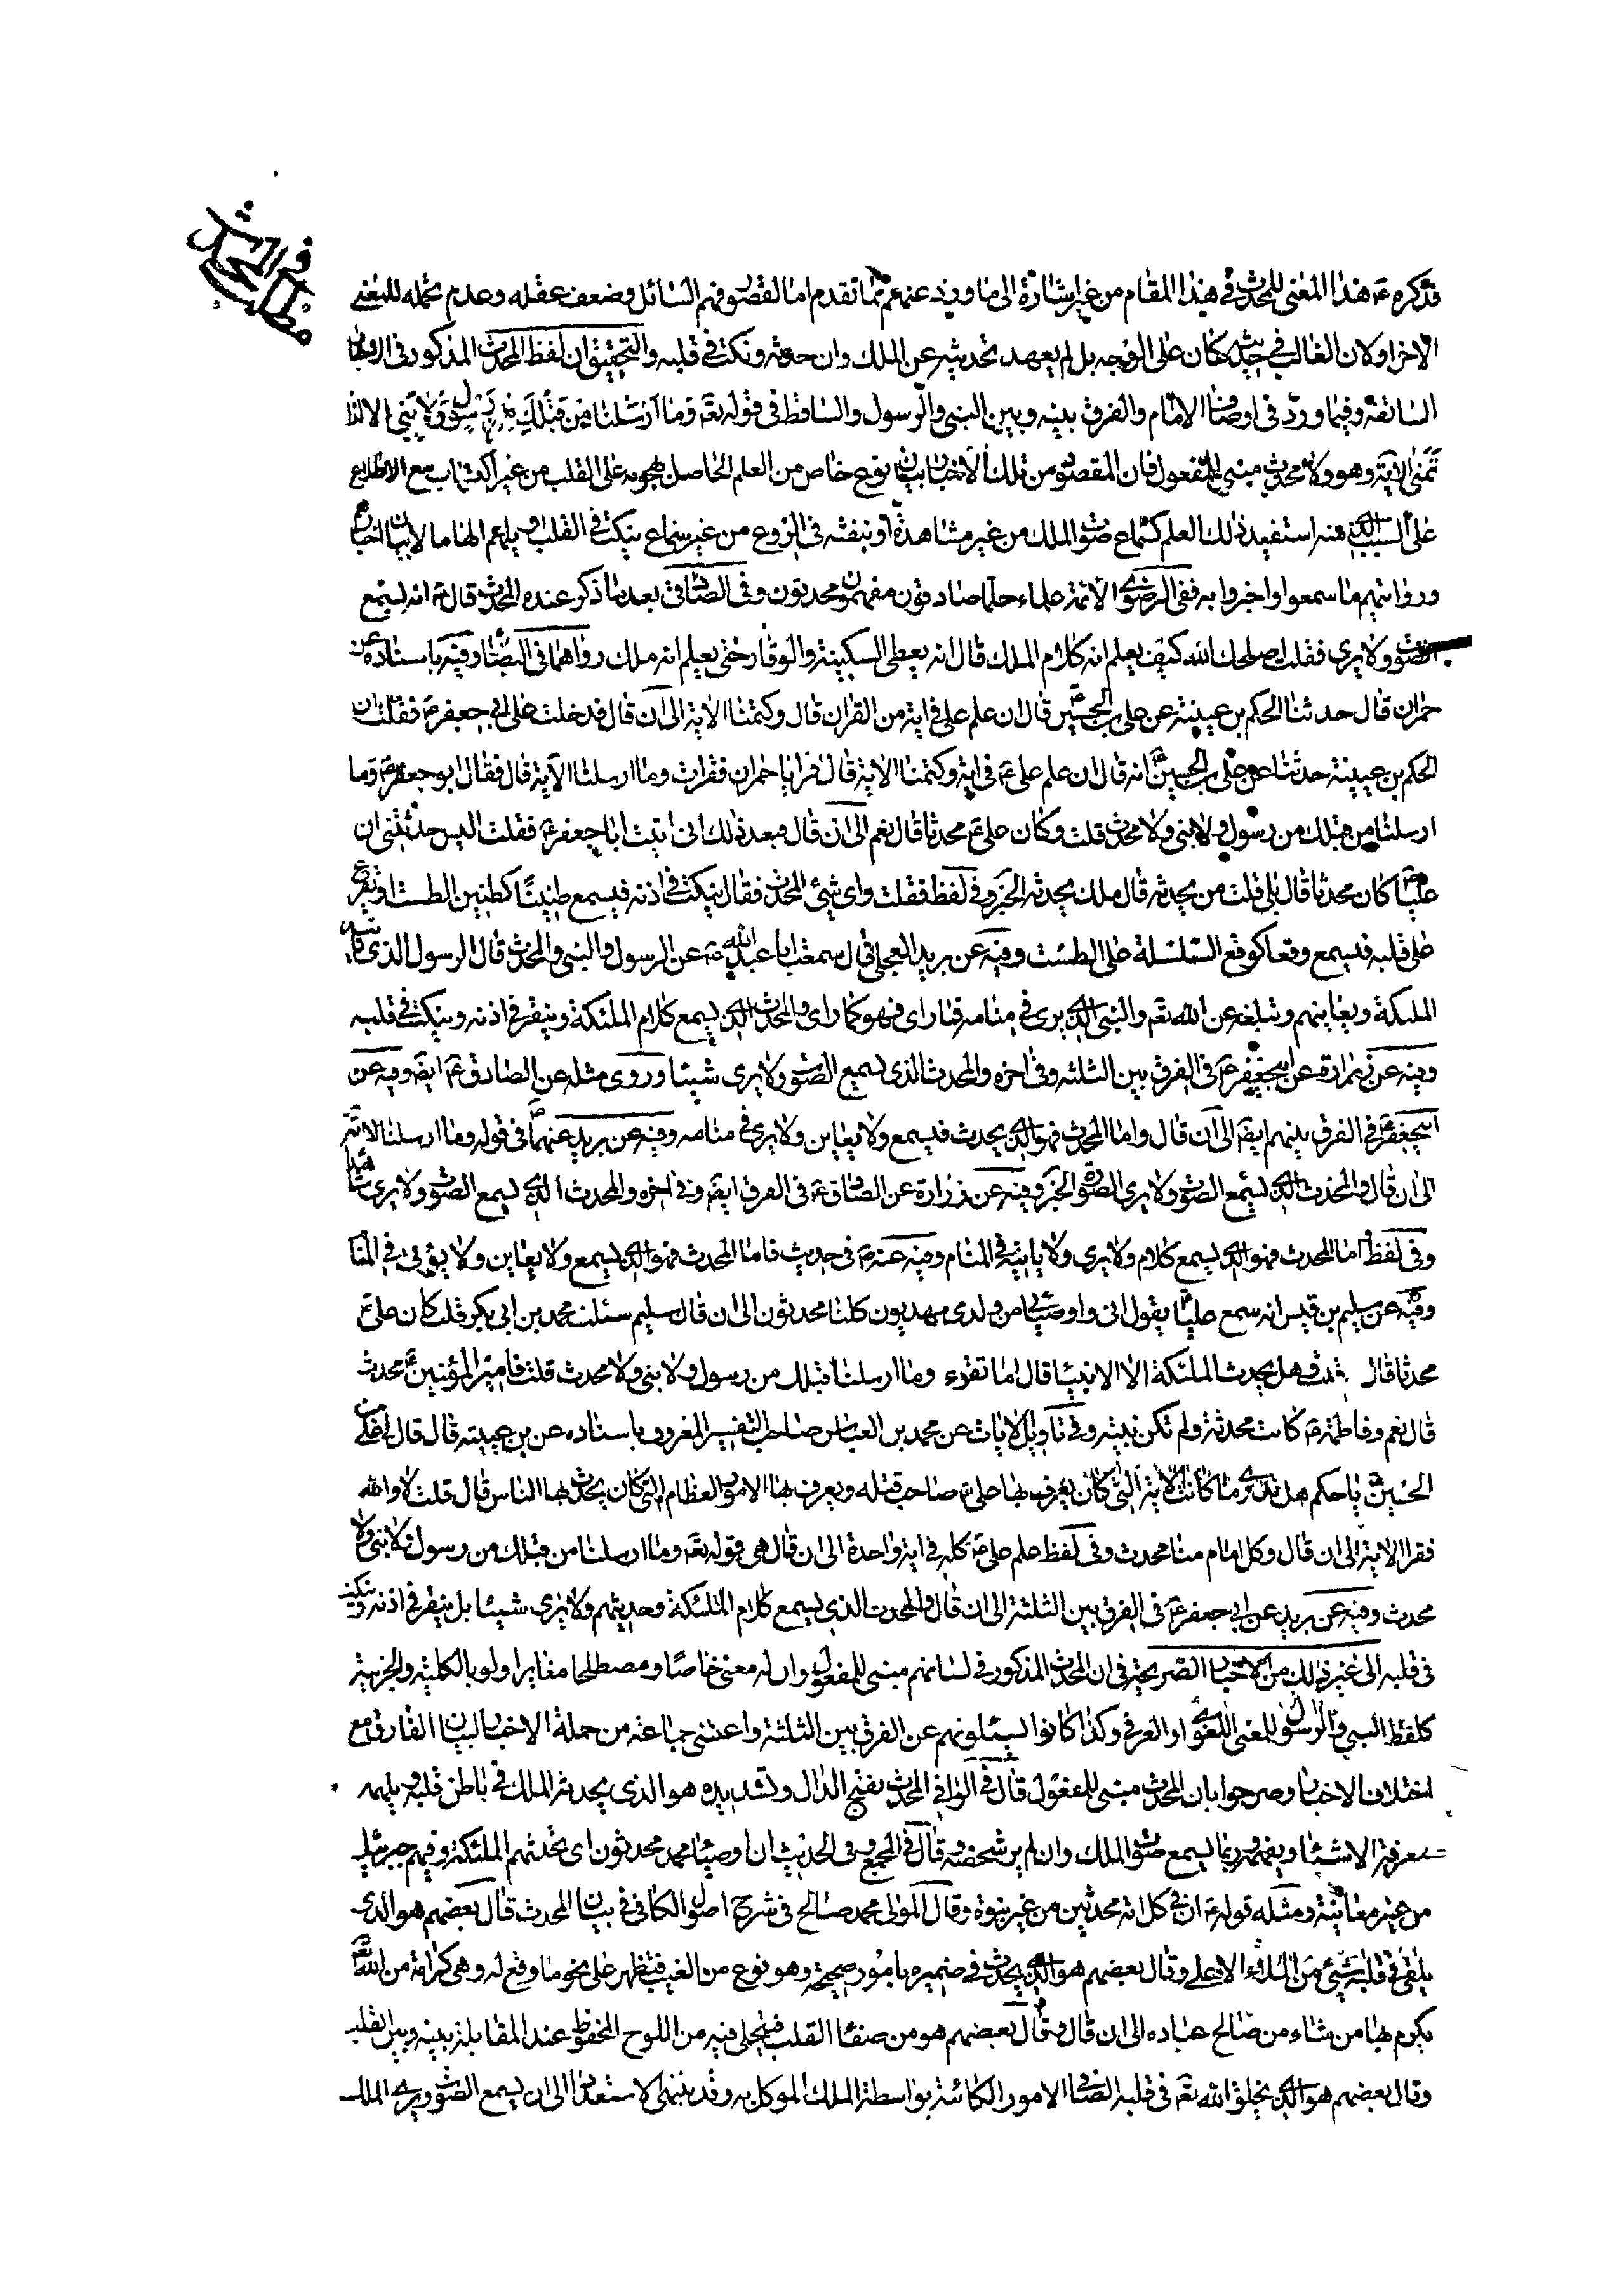 في المحدث
فذكره ع هذا المعنى للمحدث في هذا المقام من غير اشارة الى ما ورد عنهم مما تقدم اما لقصور فهم السائل وضعف عقله وعدم تحمله للمعنى
الاخر او لان الغالب في حديثه كان على الوجه بل لم يعهد تحديثه عن الملك وان حدثه ونكت في قلبه والتحقيق ان لفظ المحدث المذكور في الروايات
السابقة وفيما ورد في اوصاف الامام والفرق بينه وبين النبي والرسول والساقط في قوله تعه وما ارسلنا من قبلك من رسول ولا نبي الا اذا
تمنى الاية وهو ولا محدث مبني للمفعول فان المقصود من تلك الاخبار بيان نوع خاص من العلم الحاصل بهجومه على القلب من غير اكتساب مع الاطلاع
على السبب الذي منه استفيد ذلك العلم كسماع صوت الملك من غير مشاهدة او بنفثه في الروع من غير سماع ينكت في القلب او يلهم الهاما لا بيان اخبارهم
ورواتهم ما سمعوا واخبروا به ففي الرضوي الائمة علماء حلماء صادقون مفهمون محدثون وفي الصافي بعد ما ذكر عنده المحدث قال ع انه يسمع
الصوت ولا يرى فقلت اصلحك الله كيف يعلم انه كلام الملك قال انه يعطى السكينة والوقار حتى يعلم انه ملك رواهما في البصائر وفيه باسناده عن
حمران قال حدثنا الحكم بن عيينة عن علي بن الحسين ع قال ان علم علي في اية من القران قال وكتمنا الاية الى ان قال فدخلت على ابي جعفر ع فقلت ان
الحكم بن عيينة حدثنا عن علي بن الحسين ع انه قال ان علم علي ع في اية وكتمنا الاية قال اقرا يا حمران فقرات وما ارسلنا الاية قال فقال ابو جعفر ع وما
ارسلنا من قبلك من رسول ولا نبي ولا محدث قلت وكان علي ع محدثا قال نعم الى ان قال فبعد ذلك اني اتيت ابا جعفر ع فقلت اليس حدثتني ان
عليا ع كان محدثا قال بلى قلت من يحدثه قال ملك يحدثه الخبر وفي لفظ فقلت واي شيئ المحدث فقال ينكت في اذنه فيسمع طنينا كطنين الطست او يقرع
على قلبه فيسمع وقعا كوقع السلسلة على الطست وفيه عن بريد العجلي قال سمعت ابا عبد الله ع عن الرسول والنبي والمحدث قال الرسول الذي تاتيه
الملئكة ويعاينهم وتبلغه عن الله تعه والنبي الذي يرى في منامه فما راى فهو كما راى والمحدث الذي يسمع كلام الملئكة وينقر في اذنه وينكت في قلبه
وفيه عن زرارة عن ابيجعفر ع في الفرق بين الثلثه وفي اخره والمحدث الذي يسمع الصوت ولا يرى شيئا وروى مثله عن الصادق ع ايضه وفيه عن
ابيجعفر ع في الفرق بينهم ايضه الى ان قال واما المحدث فهو الذي يحدث فيسمع ولا يعاين ولا يرى في منامه وفيه عن بريد عنهما ع في قوله وما ارسلنا الاية
الى ان قال والمحدث الذي يسمع الصوت ولا يرى الصورة الخبر وفيه عن زرارة عن الصادق ع في الفرق ايضه وفي اخره والمحدث الذي يسمع الصوت ولا يرى شاهدا
وفي لفظ اما المحدث فهو الذي يسمع كلام ولا يرى ولا ياتيه في المنام وفيه عنه ع في حديث فاما المحدث فهو الذي يسمع ولا يعاين ولا يؤتى في المنام
وفيه عن سليم بن قيس انه سمع عليا ع يقول اني واوصيائي من ولدي مهديون كلنا محدثون الى ان قال سليم سئلت محمد بن ابي بكر قلت كان علي ع
محدثا قال نعم قلت وهل يحدث الملئكة الا الانبياء قال اما تقرء وما ارسلنا قبلك من رسول ولا نبي ولا محدث قلت فامير المؤمنين ع محدث
قال نعم وفاطمة ع كانت محدثة ولم تكن نبيه وفي تاويل الايات عن محمد بن العباس صاحب التفسير المعروف باسناده عن بن عيينه قال قال لي علي بن
الحسين ع يا حكم هل تدري ما كانت الاية التي كان يعرف بها علي ع صاحب قتله ويعرف بها الامور العظام التي كان يحدث بها الناس قال قلت لا والله
فقرا الاية الى ان قال وكل امام منا محدث وفي لفظ علم علي ع كله في اية واحدة الى ان قال هي قوله تعه وما ارسلنا من قبلك من رسول ولا نبي ولا
محدث وفيه عن بريد عن ابي جعفر ع في الفرق بين الثلثة الى ان قال والمحدث الذي يسمع كلام الملئكة وحديثهم ولا يرى شيئا بل ينقر في اذنه وينكت
في قلبه الى غير ذلك من الاخبار الصريحة في ان المحدث المذكور في لسانهم مبني للمفعول وان له معنى خاصا ومصطلحا مغايرا ولو بالكلية والجزيية
كلفظ النبي والرسول للمعنى اللغوي او العرفي وكذا كانوا يسئلونهم عن الفرق بين الثلثة واعتنى جماعة من حملة الاخبار لبيان الفارق مع
اختلاف الاخبار وصرحوا بان المحدث مبني للمفعول قال في الوافي المحدث بفتح الدال وتشديده هو الذي يحدثه الملك في باطن قلبه ويلهمه
معرفة الاشياء ويفهمه وربما يسمع صوت الملك وان لم ير شخصه وقال في المجمع وفي الحديث ان اوصياء محمد محدثون اي تحدثهم الملئكة وفيهم جبرئيل
من غير معاينة ومثله قوله ع ان في كل امة محدثين من غير نبوة وقال المولى محمد صالح في شرح اصول الكافي في بيان المحدث قال بعضهم هو الذي
يلقى في قلبه شيئ من الملاء الاعلى وقال بعضهم هو الذي يحدث في ضميره بامور صحيحة وهو نوع من الغيب فتظهر على نحو ما وقع له وهي كرامة من الله تعه
يكرم بها من شاء من صالح عباده الى ان قال وقال بعضهم هو من صفاء القلب فيتجلى فيه من اللوح المحفوظ عند المقابلة بينه وبين القلب
وقال بعضهم هو الذي يخلق الله تعه في قلبه الصافي الامور الكائنة بواسطة الملك الموكل به وقد ينتهي الاستعداد الى ان يسمع الصوت ويرى الملك